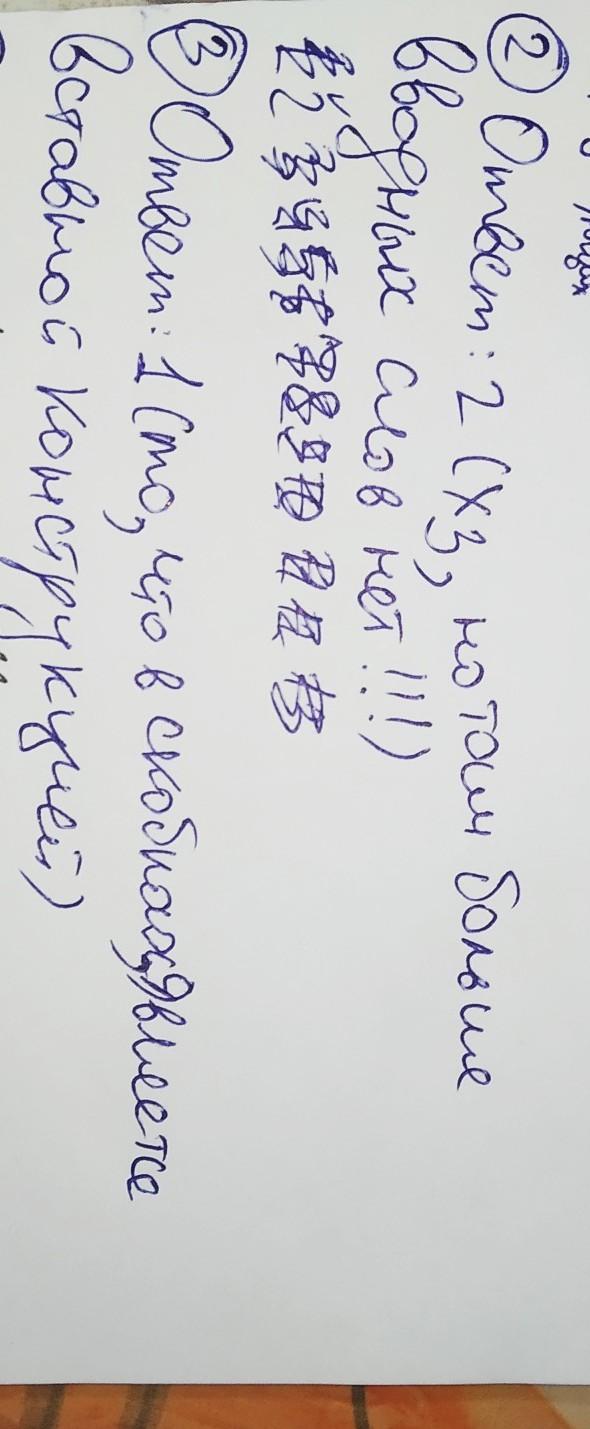 ② Ответ: 2 (хз, но там больше
вводных слов нет!!!)
③ Ответ: 1 (то, что в скобках, является
вставной конструкцией)